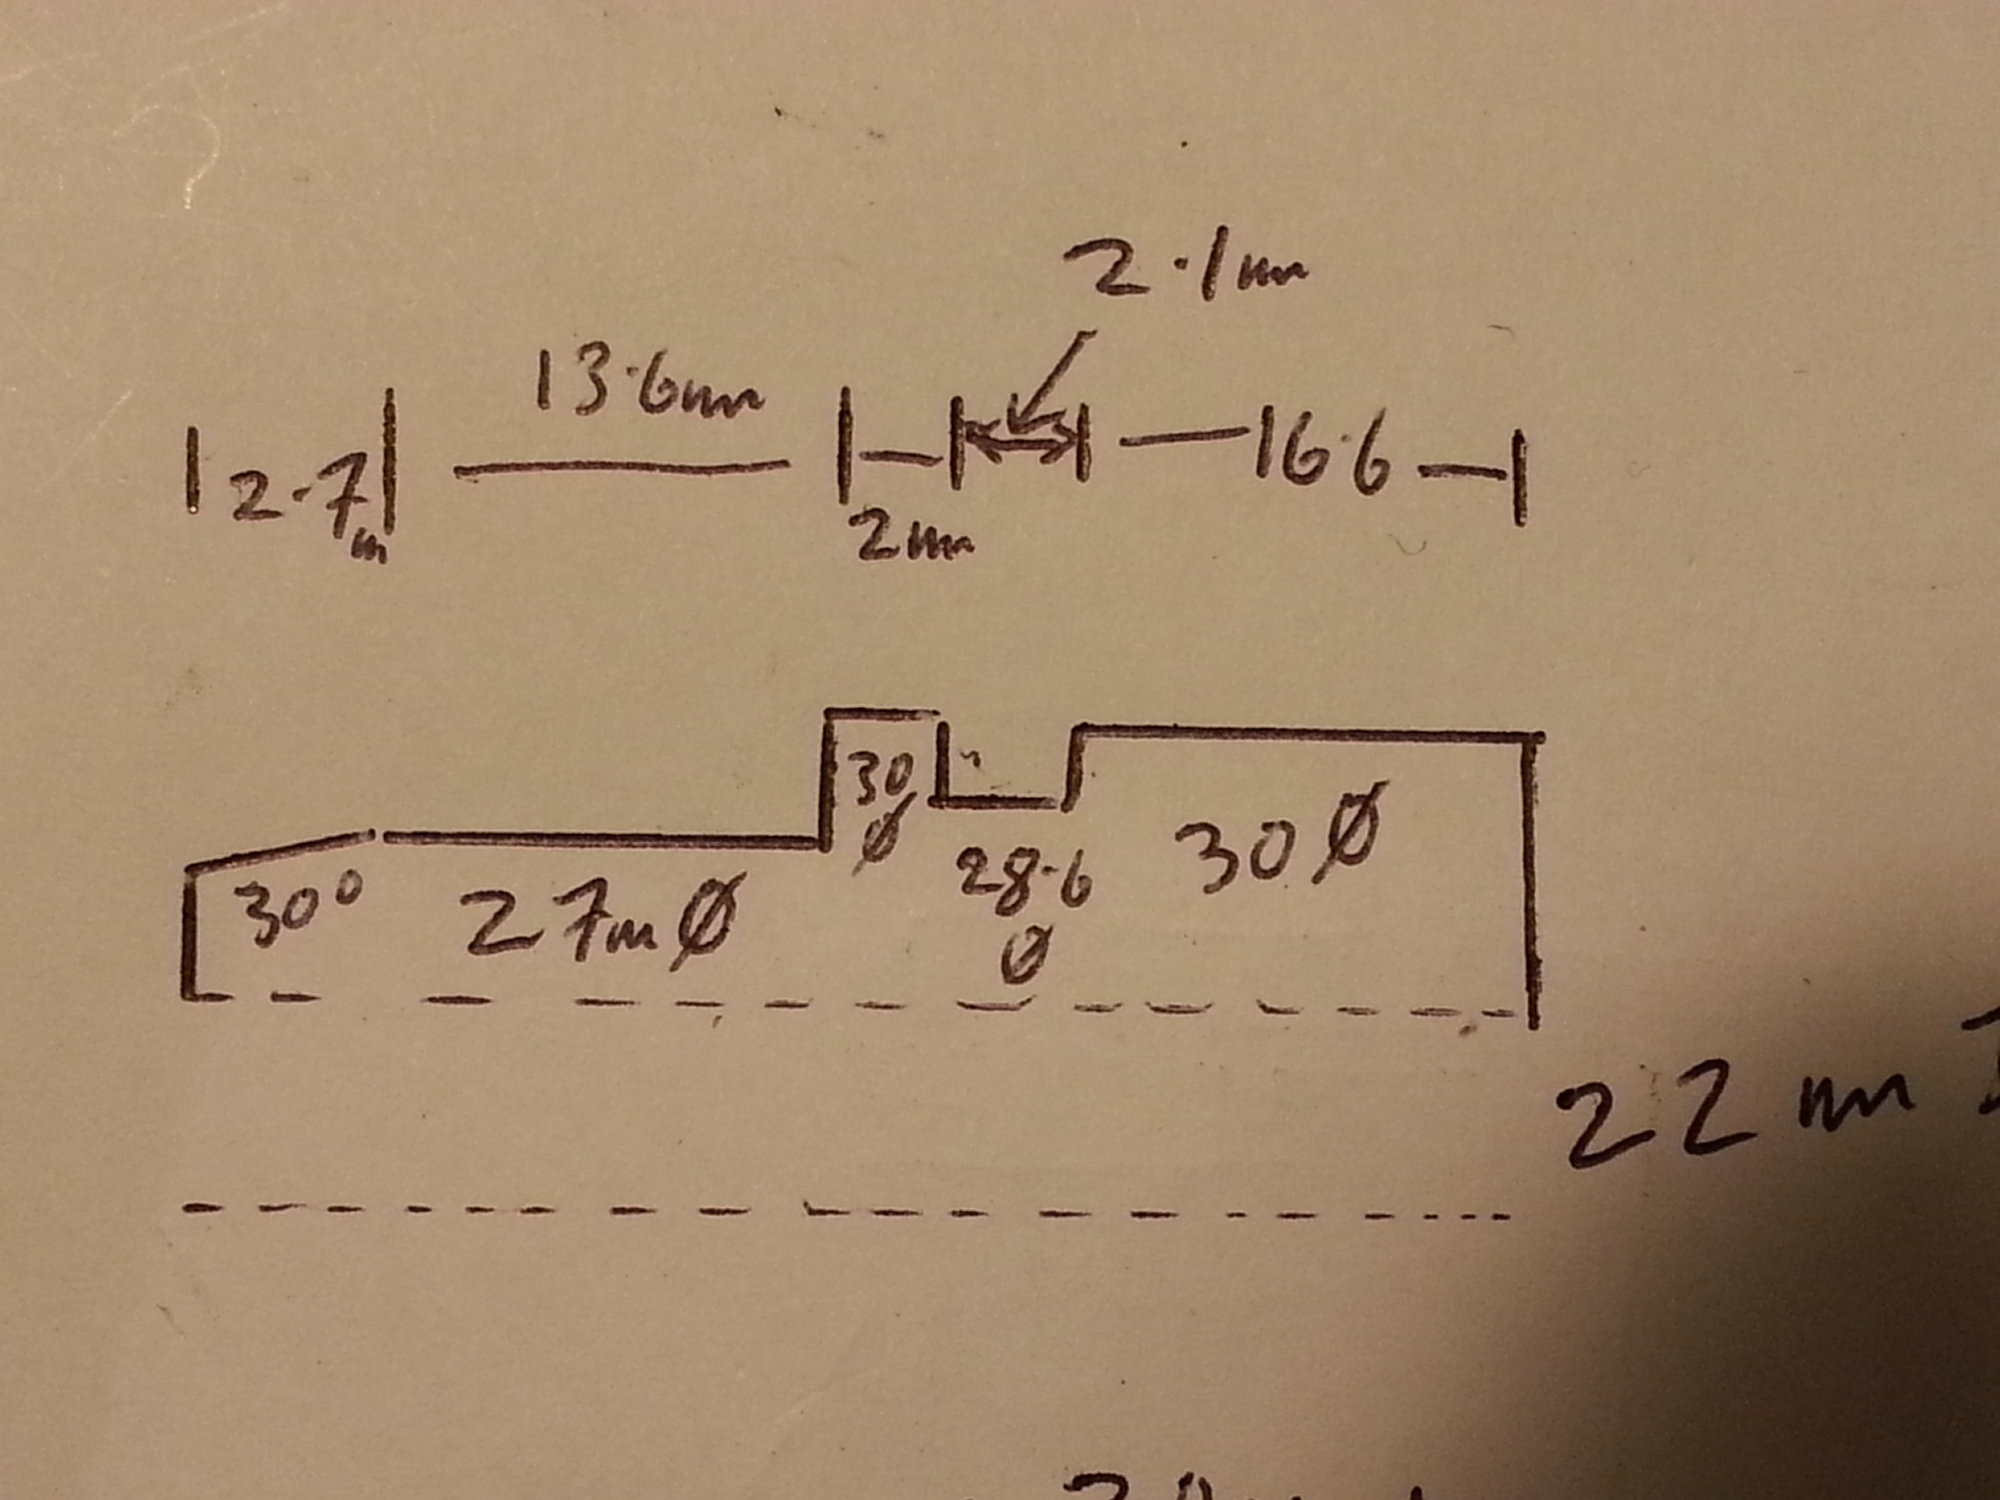 2.1mm
13.6mm
2.7m
16.6
2mm
30
Ø
30°
27m Ø
28.6
Ø
30 Ø
22mm